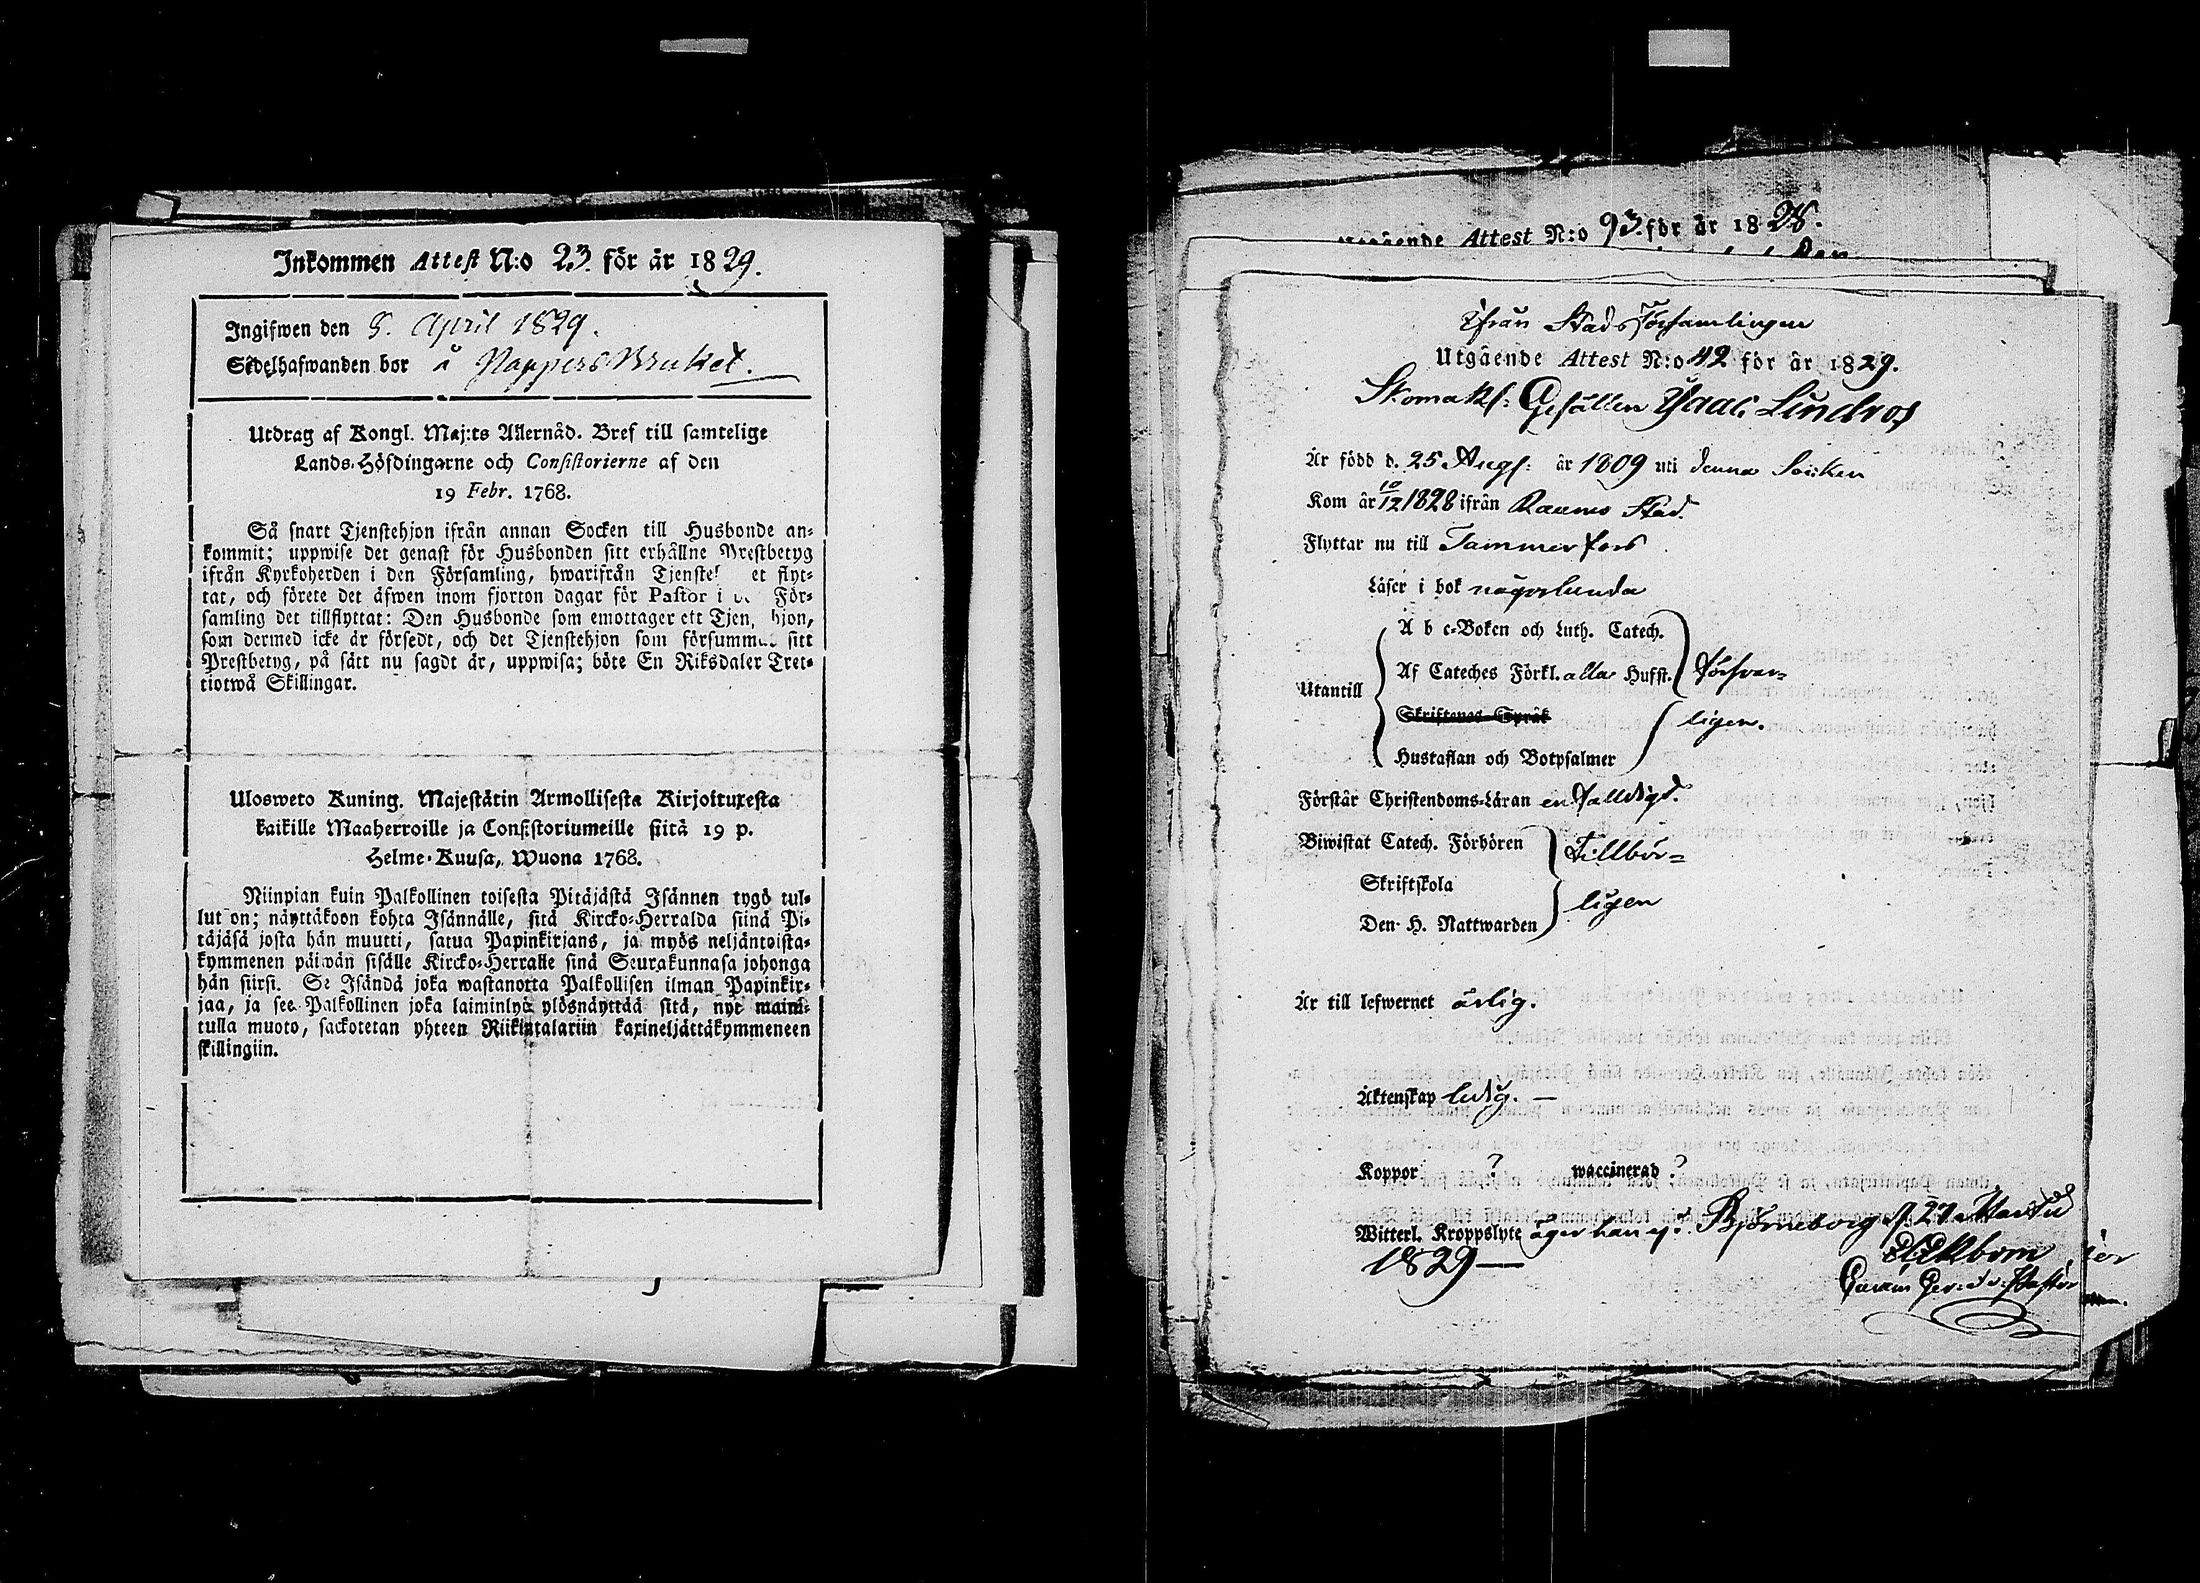 Inkommen Attest N:o 23. för år 1829.
Ingifwen den 5. April 1829.
Sedelhafwanden bor å Pappers Bruket.
Utdrag af Kongl. Maj:ts Allernåd. Bref till samtelige
Lands-Höfdingarne och Consistorierne af den
19 Febr. 1768.
Så snart Tjenstehjon ifrån annan Socken till Husbonde an-
kommit; uppwise det genast för Husbonden sitt erhållne Prestbetyg
ifrån Kyrkoherden i den Församling, hwarifrån Tjenste et flyt-
tat, och förete det äfwen inom fjorton dagar för Pastor i För-
samling det tillflyttat: Den Husbonde som emottager ett Tjen hjon,
som dermed icke är försedt, och det Tjenstehjon som försumma sitt
Prestbetyg, på sätt nu sagdt är, uppwisa; böte En Riksdaler Tret-
tiotwå Skillingar.
Ulosweto Kuning. Majestätin Armollisesta Kirjoituxesta
kaikille Maaherroille ja Consistoriumeille siitä 19 p.
Helme-Kuusa, Wuona 1768.
Niinpian kuin Palkollinen toisesta Pitäjästä Isännen tygö tul-
lut on; näyttäkoon kohta Isännälle, sitä Kircko-Herralda siinä Pi-
täjäsä josta hän muutti, saatua Papinkirjans, ja myös neljäntoista-
kymmenen päiwän sisälle Kircko-Herralle sinä Seurakunnasa johonga
hän siirsi. Se Isändä joka wastanotta Palkollisen ilman Papinkir-
jaa, ja see Palkollinen joka laiminlyö ylösnäyttää sitä, nyt maini-
tulla muoto, sackotetan yhteen Riikintalariin kaxineljättäkymmeneen
skillingiin.
Attest N:o 93. för år 1828.
Ifrån Stads Församlingen
Utgående Attest N:o 42 för år 1829.
Skomak: Gesällen Isaac Lindros
Är född d. 25 Aug: år 1809 uti denna Socken
Kom år 10/12 1828 ifrån Raumo Stad.
Flyttar nu till Tammerfors
Läser i bok någorlunda
A b c-Boken och Luth. Catech.
Utantill Af Cateches Förkl. alla Hufst. försvar-
Skriftenes Språk ligen.
Hustaflan och Botpsalmer
Förstår Christendoms-Läran enfalldigt.
Biwistat Catech. Förhören Tillbör-
Skriftskola
ligen
Den H. Nattwarden
Är till lefwernet ärlig.
Äktenskap ledig. —
Koppor ? waccinerad ?
Witterl. Kroppslyte äger han ej. Björneborg d. 27 Martii
1829 —
Ekbom
Pastor